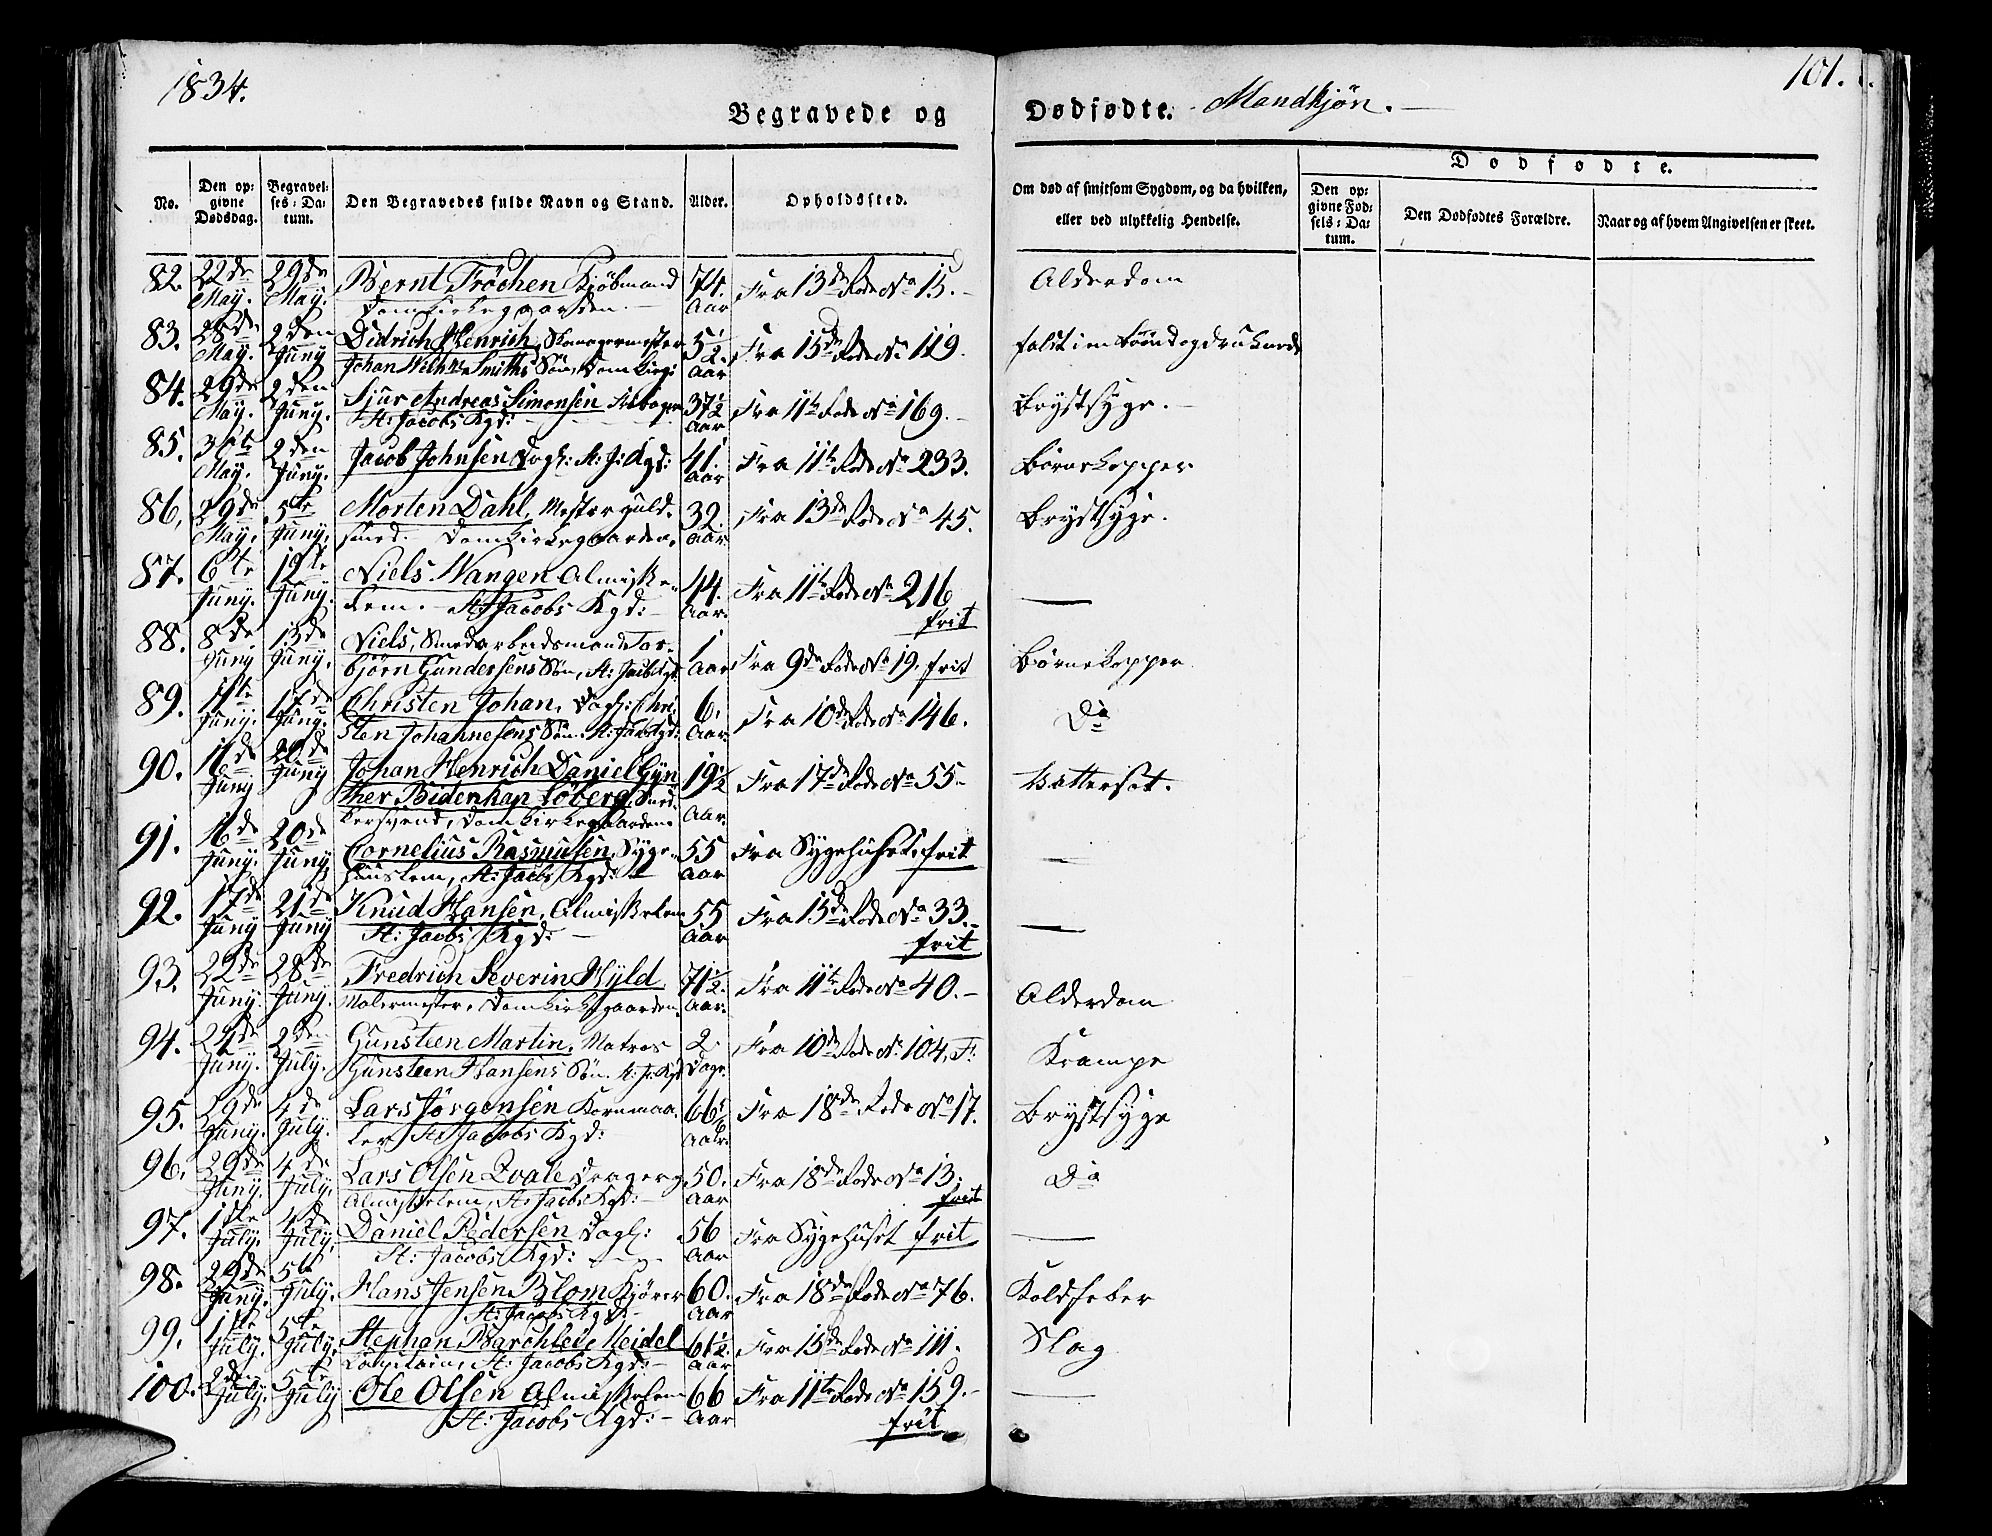 1834.
101.
Begravede og Dødfødte. Mandkjøn.
No.
Den op-givne Dødsdag.
Begravel-ses-Da-tum.
Den Begravedes fulde Navn og Stand.
Alder.
Opholdssted.
Om død af smitsom Sygdom, og da hvilken, eller ved ulykkelig Hendelse.
Dødfødte.
Den op-givne Fød-sels-Da-tum.
Den Dødfødtes Forældre.
Naar og af hvem Angivelsen er skeet.
82. 22de May. 29de May. Bernt Frøchen Kjøbmand 74. Aar Fra 13de Rode No 15. Alderdom
Domkirkegaarden.
83. 28de May. 2den Juny Didrich Henrich, 5½ Aar Fra 15de Rode No 119. faldt i en og druknede
Johan Wilh: Smiths Søn, Domkirkg:
84. 29de May. 2den Juny. Sjur Andreas Simonsen 37½ Aar Fra 11te Rode No 169. Brystsyge.
St: Jacobs Kgd:
85. May. 2den Juny. Jacob Johnsen Dagl: St: J: Kgd: 41. Aar Fra 11te Rode No 233. Børnekopper
86. 29de May. 5te Juny. Morten Dahl, Mester Guld- 32. Aar. Fra 13de Rode No 45. Brystsyge.
smed. Domkirkegaarden.
87. 6te Juny. 12te Juny. Niels Wangen Almisse- 44. Aar. Fra 11te Rode No 216 frit
lem. St: Jacobs Kgd:
88. 8de Juny 13de Juny. Niels, Smedarbeidsmand Tor- 1 Aar Fra 9de Rode No 19. frit Børnekopper
bjørn Gundersens Søn, St: Jacobs Kgd:
89. 11te Juny. 17de Juny. Christen Johan, Dagl: Chri- 6. Aar. Fra 10de Rode No 146. Do
sten Johannesens Søn. St: Jacobs Kgd:
90. 16de Juny 20de Juny Johan Henrich Daniel Gyn- 19½ Aar. Fra 17de Rode No 55 Vattersot.
ther Bidenkap Løberg,
kersvend, Domkirkegaarden
91. 16de Juny. 20de Juny Cornelius Rasmusen, Syge- 55 Aar Fra Sygehuset frit
huuslem, St: Jacobs Kgd:
92. 17de Juny 21de Juny Knud Hansen, Almisselem 55 Aar Fra 15de Rode No 33. frit
St: Jacobs Kgd:
93. 22de Juny. 28de Juny. Fredrich Severin Hyld, 71½ Aar. Fra 11te Rode No 40. Alderdom
Malermester, Domkirkegaarden
94. Juny. 2den July. Gunsteen Martin, Matros 2 Dage. Fra 10de Rode No 104, F: Krampe
Gunsteen Hansens Søn. St: J: Kgd
95. 29de Juny. 4de July. Lars Jørgensen Kornmaa- 66 Aar. Fra 18de Rode No 17. Brystsyge
ler St: Jacobs Kgd:
96. 29de Juny. 4de July. Lars Olsen Qvale, 50. Aar Fra 18de Rode No 13. frit Do
Almisselem, St: Jacobs Kgd:
97. 1ste July. 4de July. Daniel Pedersen Dagl: 56 Aar Fra Sygehuset frit
St: Jacobs Kgd:
98. 29de Juny. 5te July. Hans Jensen Blom Kjører 60. Aar Fra 18de Rode No 76. Koldfeber
St: Jacobs Kgd:
99. 1ste July. 5te July. Stephan Meidel 61½ Aar Fra 15de Rode No 111. Slag
Capitain, St: Jacobs Kgd:
100. 2den July. 5te July Ole Olsen Almisselem 66 Aar Fra 11te Rode No 159. frit
St: Jacobs Kgd: